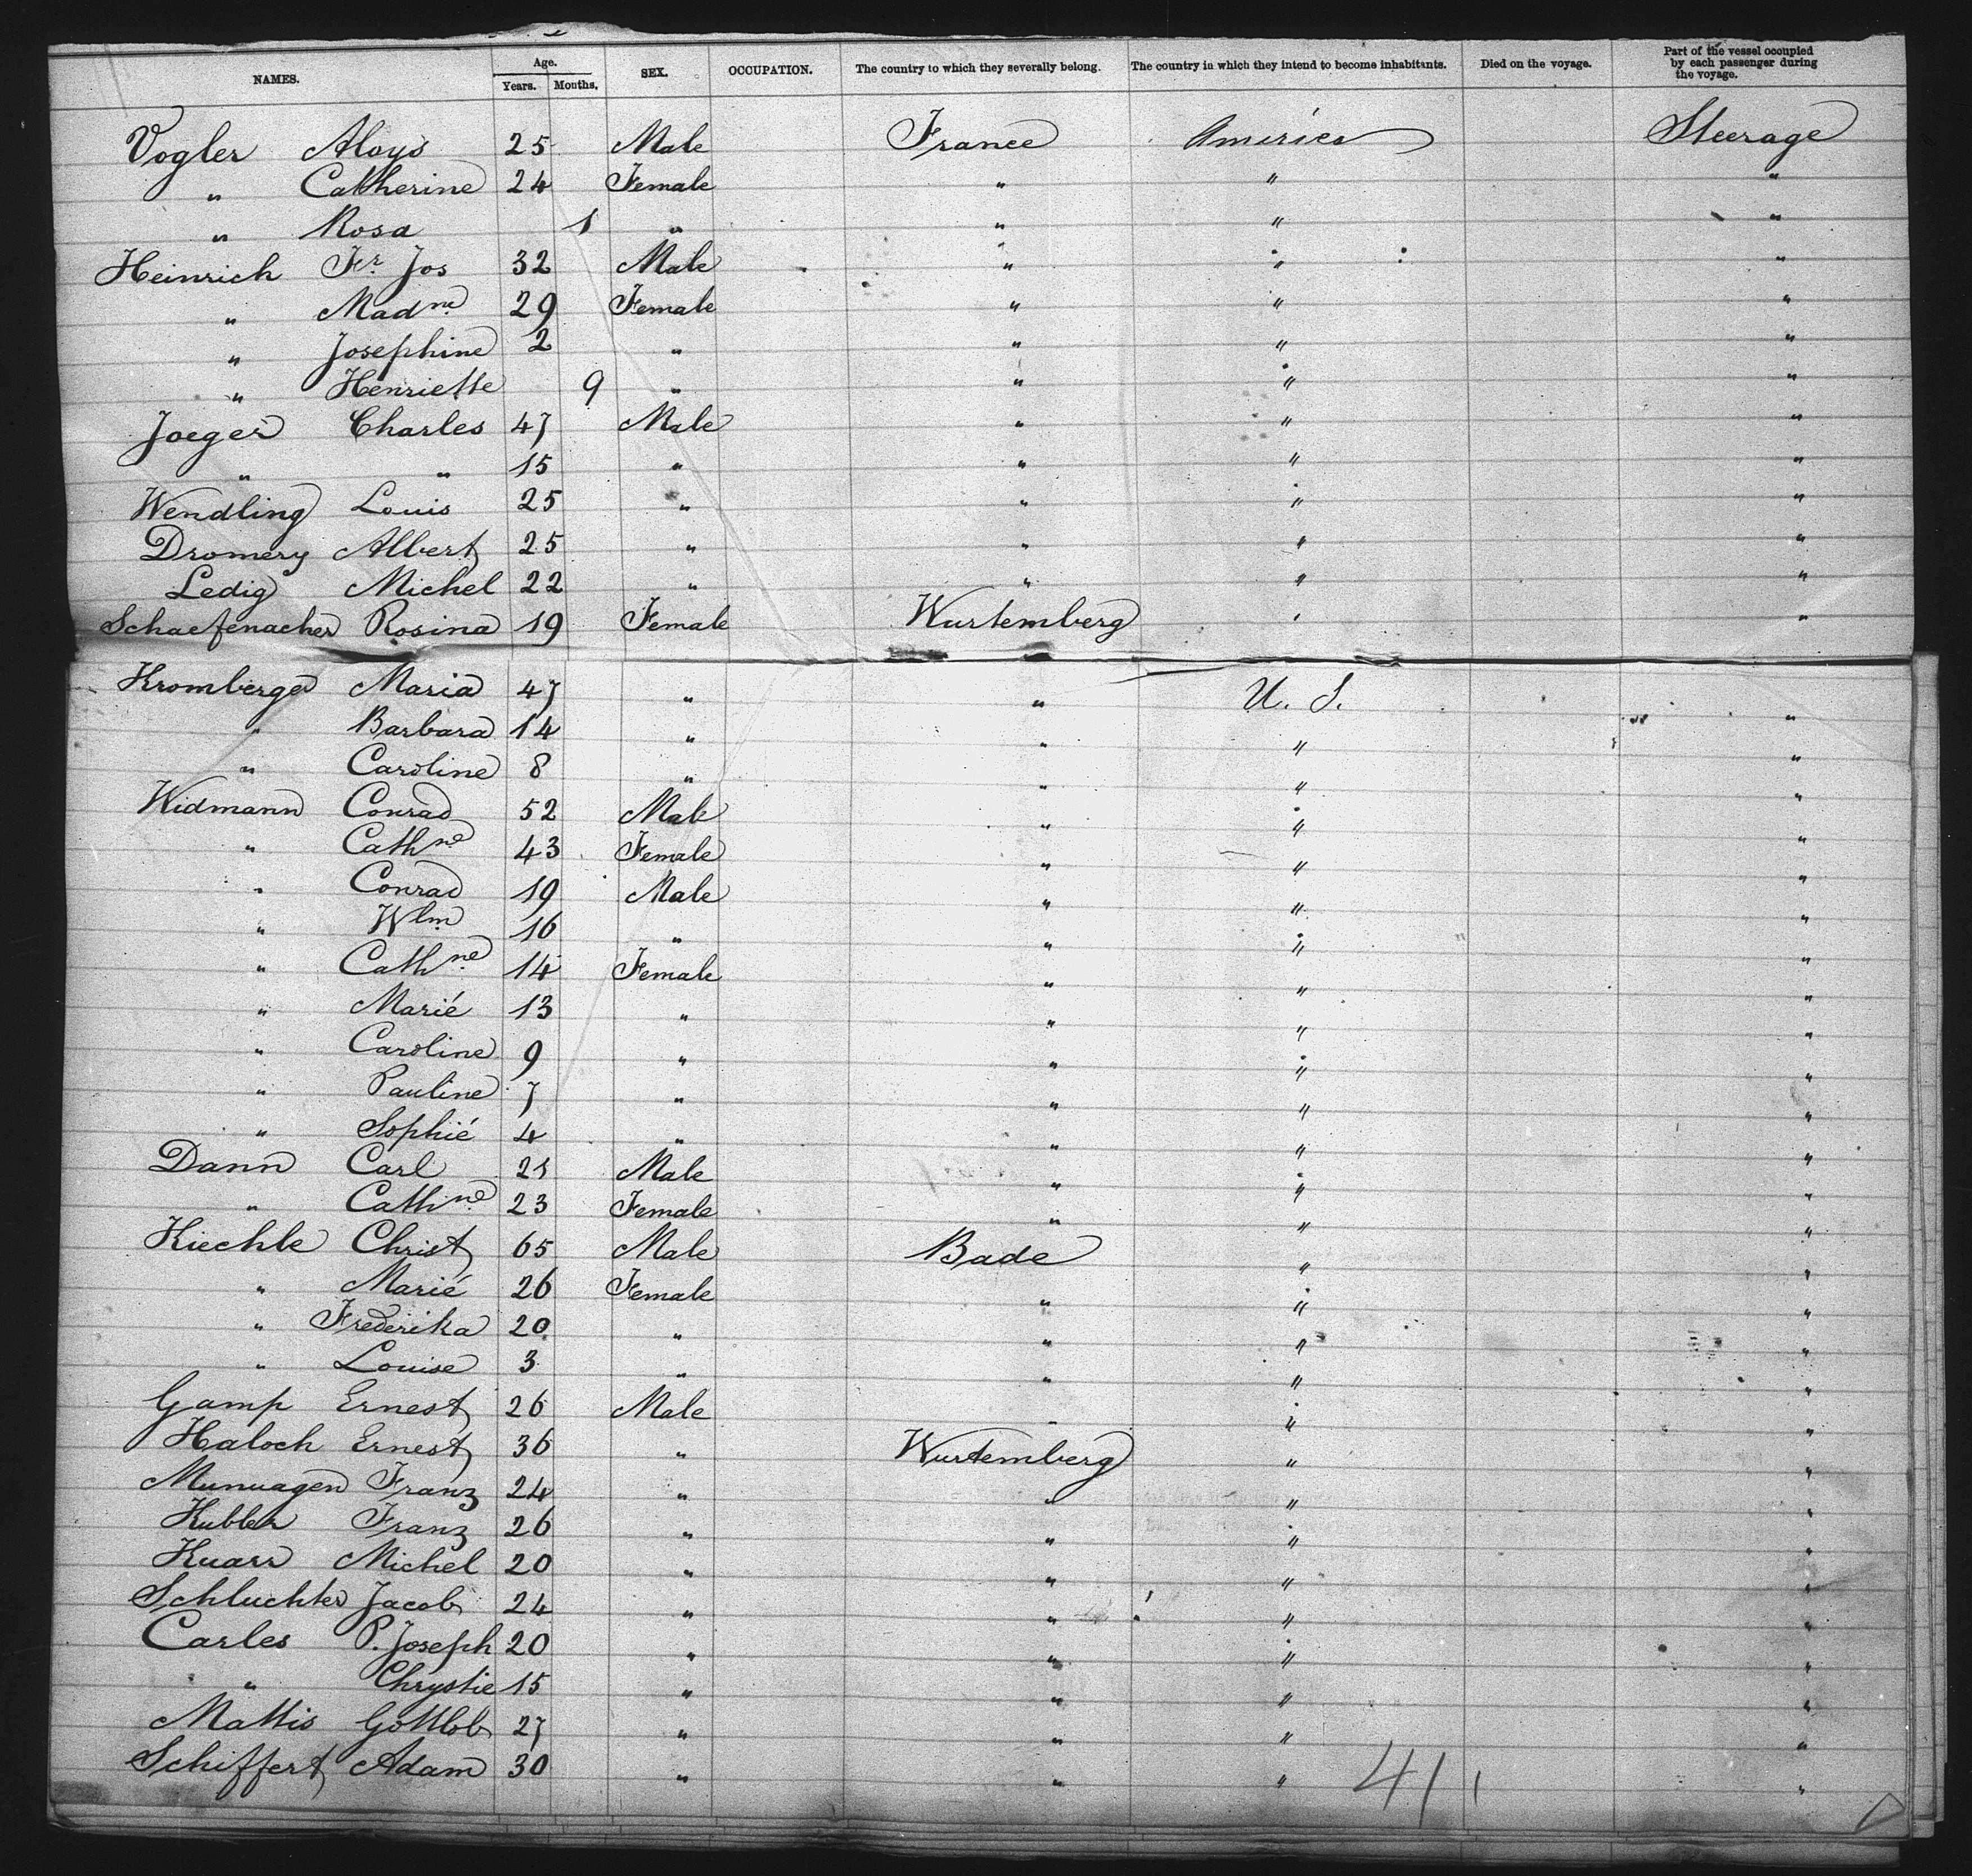 NAMES. Age. Years. Months. SEX. OCCUPATION. The country to which they severally belong. The country in which they intend to become inhabitants. Died on the voyage. Part of the vessel occupied by each passenger during the voyage.
Vogler Aloys 25 Male France America Steerage
" Catherine 24 Female " " "
" Rosa 1 " " " "
Heinrich Fr. Jos 32 Male " " "
" Madne 29 Female " " "
" Josephine 2 " " " "
" Henriette 9 " " " "
Joeger Charles 47 Male " " "
" " 15 " " " "
Wendling Louis 25 " " " "
Dromery Albert 25 " " " "
Ledig Michel 22 " " " "
Schaefenacher Rosina 19 Female Wurtemberg " "
Kromberger Maria 47 " " U. S. "
" Barbara 14 " " " "
" Caroline 8 " " " "
Widmann Conrad 52 Male " " "
" Cathne 43 Female " " "
" Conrad 19 Male " " "
" Wlm 16 " " " "
" Cathne 14 Female " " "
" Marié 13 " " " "
" Caroline 9 " " " "
" Pauline 7 " " " "
" Sophié 4 " " " "
Dann Carl 21 Male " " "
" Cathne 23 Female " " "
Kiechle Christ 65 Male Bade " "
" Marié 26 Female " " "
" Frederika 20 " " " "
" Louise 3 " " " "
Gamp Ernest 26 Male " " "
Haloch Ernest 36 " Wurtemberg " "
Franz 24 " " " "
Kubler Franz 26 " " " "
Michel 20 " " " "
Schluchter Jacob 24 " " " "
Carles P. Joseph 20 " " " "
" Chrystie 15 " " " "
Mattis Gottlob 27 " " " "
Schiffert Adam 30 " " " "
41